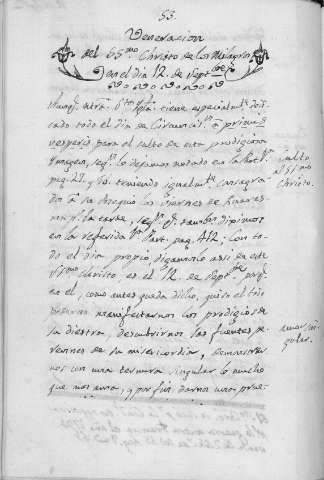 53.
Veneracion
del SSmo. Christo de los Milagros
en el dia 12. de Septbre.
Aunq. ntra. Sta. Igla. tiene especialmte. dedi-
cado todo el dia de Circuncisn. a primas
vesperas para el culto de esta prodigiosa
Imagen, segn. lo dejamos notado en la Part. 1a.
pag. 27. y 60. teniendo igualmte. consagra-
do a su obsequio los Viernes de
ma. pr. la tarde, segn. q. tambn. diximos
en la referida 1a. Part. pag. 412, con to-
do el dia propio, digamoslo asi, de este
SSmo. Christo es el 12. de Septbre. porq.
en el, como antes queda dicho, quiso el todo
manifestarnos con prodigios de
su diestra, descubrirnos las fuentes pe-
rennes de su misericordia, demonstrar-
nos con una ternura singular lo mucho
que nos ama, y por fin darnos una prue-
Culto
al SSmo.
Christo.
amor sin-
gular.